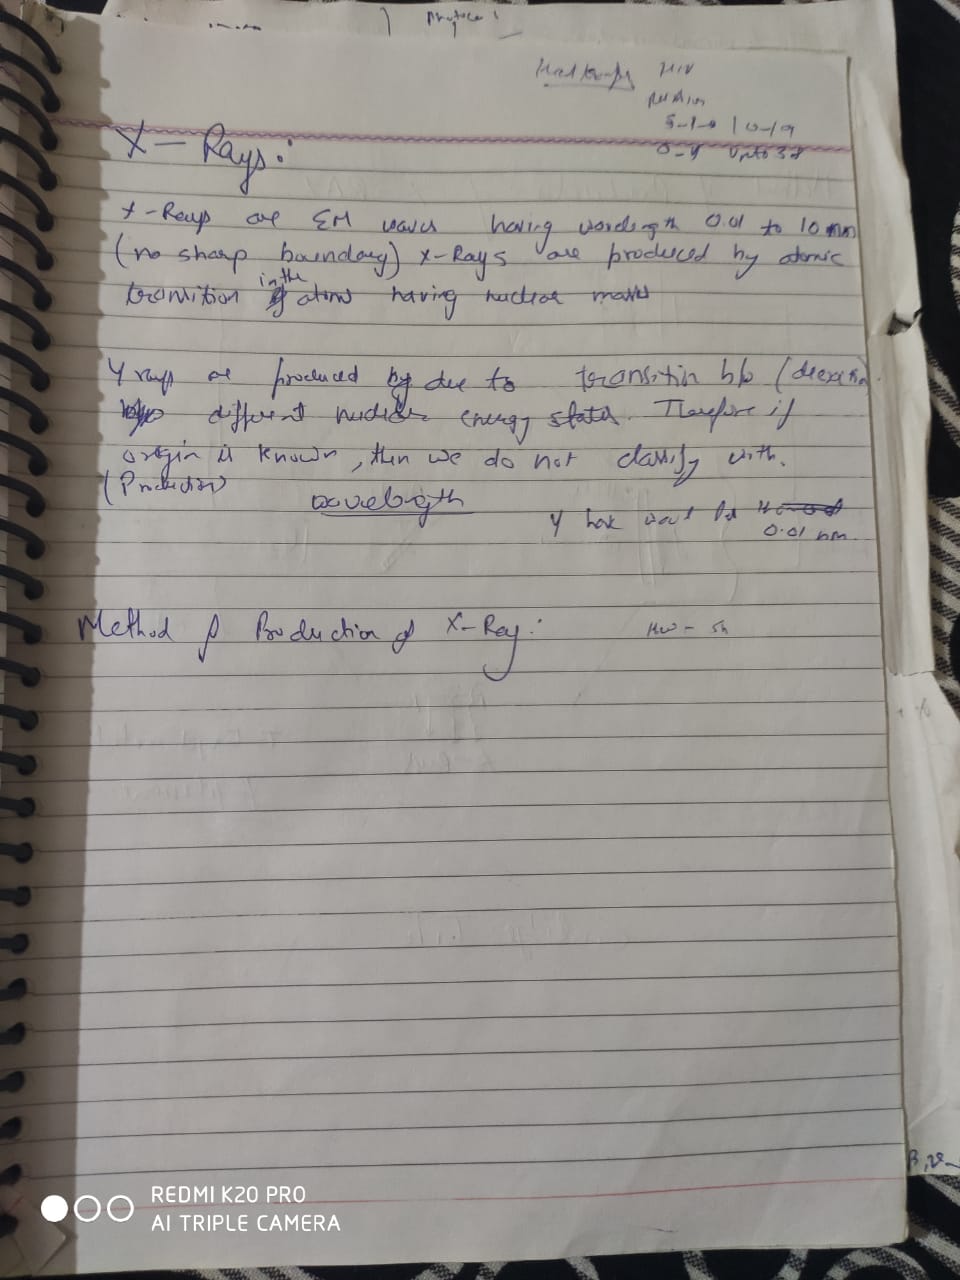 HIV
5-1-0 10-19
0-4 upto 38
X-Rays:
X-Rays are EM waves having wavelength 0.01 to 10 nm
(no sharp boundary) X-Rays are produced by atomic
transition in the atoms having nuclear
γ rays are produced by due to transitin b/w
different nuclear energy states. Therefore if
origin is known, then we do not classify with.
(Production) wavelength
γ have
0.01 nm
Method of Production of X-Ray:
HW - Sh
REDMI K20 PRO
AI TRIPLE CAMERA